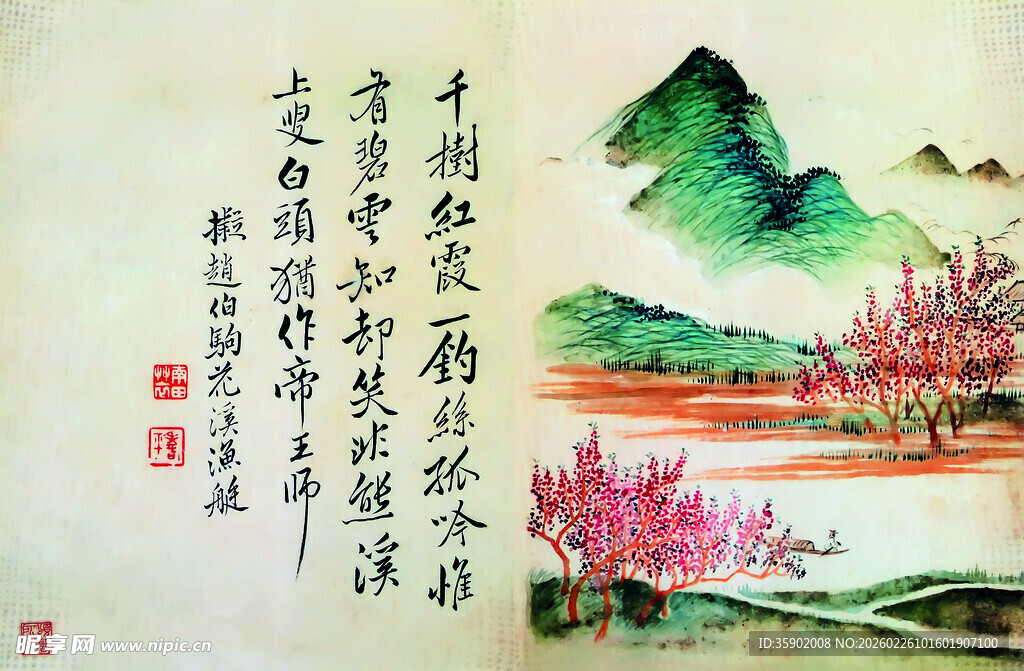 千樹紅霞一釣絲孤吟惟
有碧雲知却笑非熊溪
上叟白頭猶作帝王師
擬趙伯駒花溪漁艇
南田
壽平
昵享网 www.nipic.cn
ID:35902008 NO:20260226101601907100